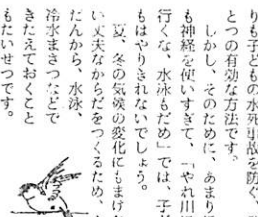 りも子どもの水死事故を防ぐ、
とつの有効な方法です。
しかし、そのために、あまり
も神経を使いすぎて、「やれ川
行くな、水泳もだめ」では、子
もはやりきれないでしょう。
夏、冬の気候の変化にもまけ
い丈夫なからだをつくるため、
だんから、水泳、
冷水まさつなどで
きたえておくこと
もたいせつです。